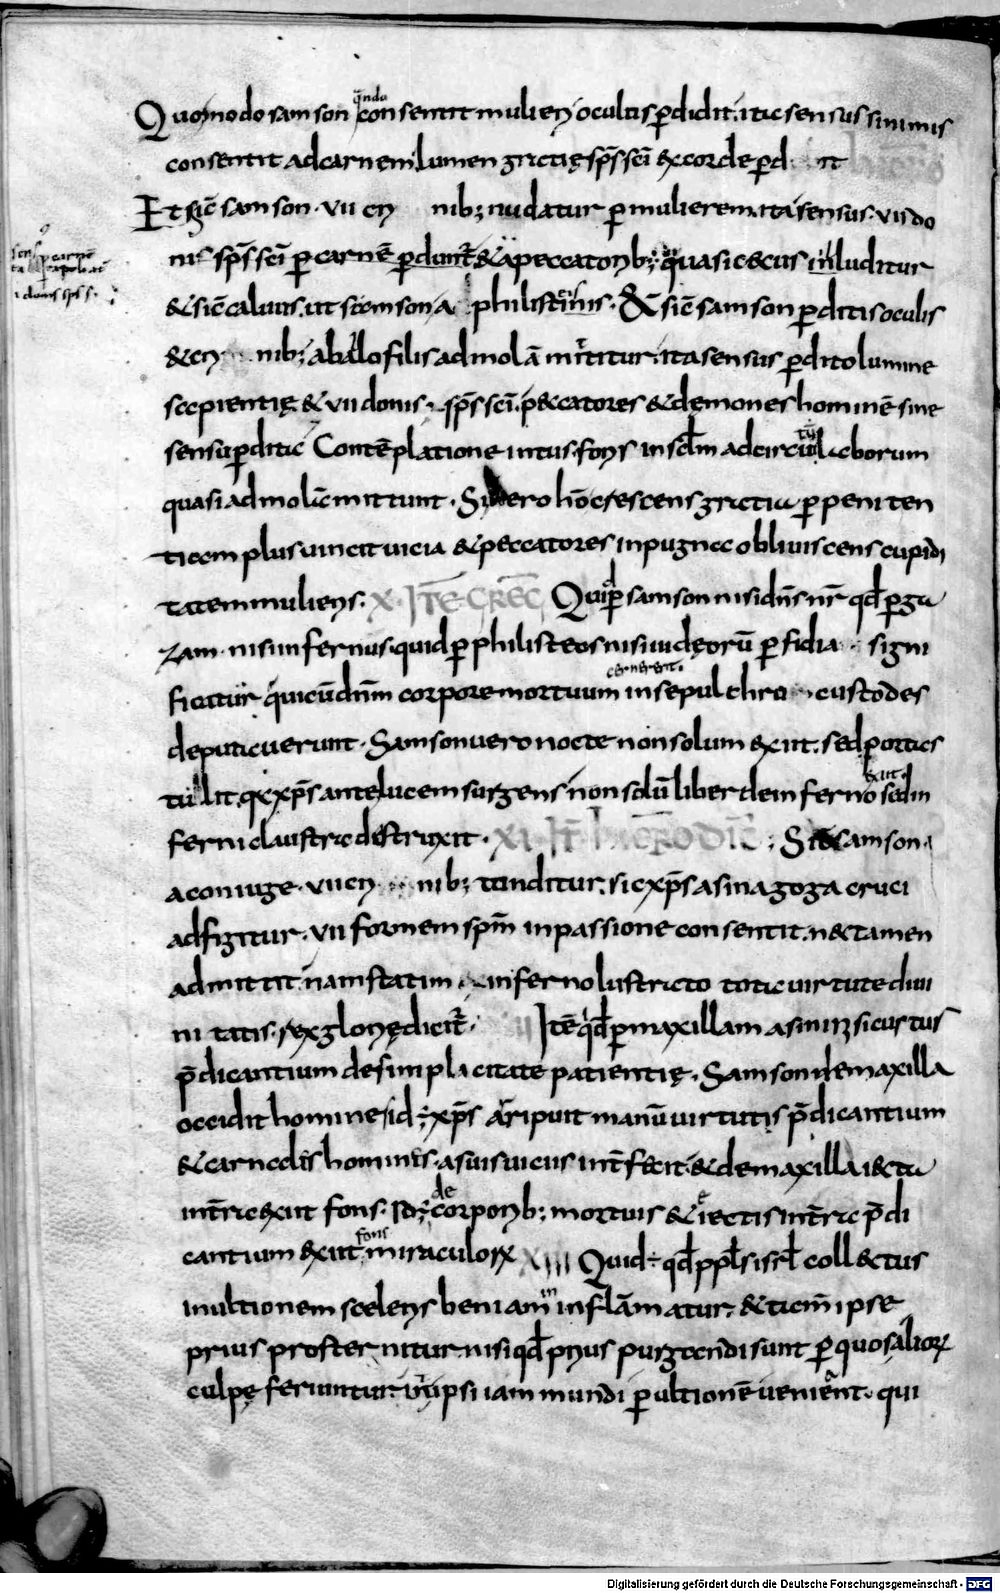 Quomodo samson q̄ndo consentit mulieri oculus p̄didit. ita sensus si nimis
consentit ad carnem lumen gratię sp̄s sc̄i ex corde p̄d it
Et sic̄ samson · vii cri nib; nudatur p mulierem. ita sensus · vii do
nis sp̄s sc̄i p carnē p̄dunt̄ & a peccatorib; quasi cecus inluditur
& sic̄ caluus. ut samson a philistinis · & sic̄ samson p̄ditis oculis
& cri nib; ab allofilis ad molā mittitur. ita sensus p̄dito lumine
sapientię & vii donis · sp̄s sc̄i. peccatores & dęmones hominē sine
sensu p̄dita Contēplatione intus. foris in sc̄lm ad circulū laborum
quasi ad molā mittunt · Si vero hō crescens gratia p peniten
tiam plus vincit vicia & peccatores inpugna obliviscens cupidi
tatem mulieris. X · ITĒ GREḠ Quip samson nisi dn̄s nr̄ qd̄ p ga
zam nisi infernus. quid p philisteos nisi iudęorū pfidia signi
ficatur qui cū dn̄m corpore mortuum in sepulchro cernerent. custodes
deputaverunt · Samson vero nocte non solum exiit. sed portas
tulit. q̄ xp̄s ante lucem surgens non solū liber de inferno exiit. sed in
ferni claustra destruxit · XI · IT̄ · Sic samson
a coniuge · vii cri nib; tonditur. sic xp̄s a sinagoga cruci
adfigitur · vii formem sp̄m in passione consentit. nec tamen
admittit nam statim inferno lustrato tota virtute divi
nitatis · rex glorię dicit̄. Itē qd̄ p maxillam asini
p̄dicantium de simplicitate patientię. Samson de maxilla
occidit homines. id ÷ xp̄s arripuit manū virtutis p̄dicantium
& carnalis hominis. a suis viciis int̄fecit. & de maxilla iecta
in t̄ra exiit fons. Id ÷ de corporib; mortuis & eiectis in t̄ra p̄di
cantium exiit fons miraculorx XIIII Quid ÷ qd̄ ppl̄s isrl̄ collectus
in ultionem sceleris beniamin inflāmatur. & tam̄ ipse
prius prosternitur. nisi qd̄ prius purgandi sunt p quos aliorx
culpę feriuntur. ut ipsi iam mundi p ultionē veniant · qui